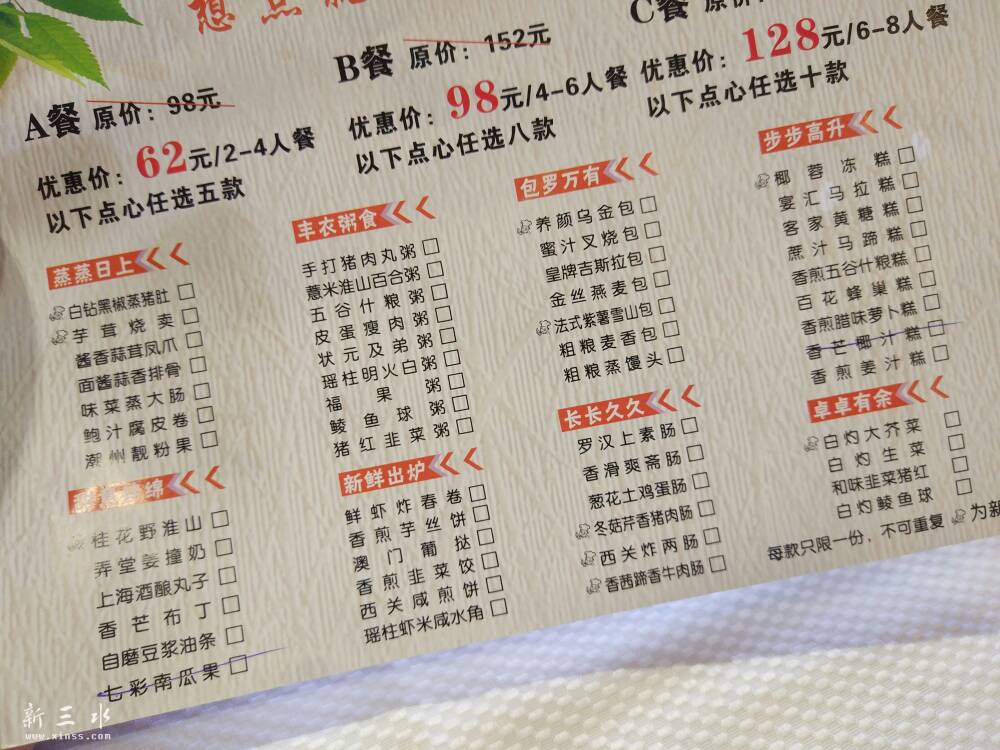 想点
A餐 原价：98元
优惠价：62元/2-4人餐
以下点心任选五款
B餐 原价：152元
优惠价：98元/4-6人餐
以下点心任选八款
C餐 原价：
优惠价：128元/6-8人餐
以下点心任选十款
蒸蒸日上
白钻黑椒蒸猪肚
芋茸烧卖
酱香蒜茸凤爪
面酱蒜香排骨
味菜蒸大肠
鲍汁腐皮卷
潮州靓粉果
绵
桂花野淮山
弄堂姜撞奶
上海酒酿丸子
香芒布丁
自磨豆浆油条
七彩南瓜果
丰衣粥食
手打猪肉丸粥
薏米淮山百合粥
五谷什粮粥
皮蛋瘦肉粥
状元及弟粥
瑶柱明火白粥
福果粥
鲮鱼球粥
猪红韭菜粥
新鲜出炉
鲜虾炸春卷
香煎芋丝饼
澳门葡挞
香煎韭菜饺
西关咸煎饼
瑶柱虾米咸水角
包罗万有
养颜乌金包
蜜汁叉烧包
皇牌吉斯拉包
金丝燕麦包
法式紫薯雪山包
粗粮麦香包
粗粮蒸馒头
长长久久
罗汉上素肠
香滑爽斋肠
葱花土鸡蛋肠
冬菇芹香猪肉肠
西关炸两肠
香茜蹄香牛肉肠
步步高升
椰蓉冻糕
宴汇马拉糕
客家黄糖糕
蔗汁马蹄糕
香煎五谷什粮糕
百花蜂巢糕
香煎腊味萝卜糕
香芒椰汁糕
香煎姜汁糕
卓卓有余
白灼大芥菜
白灼生菜
和味韭菜猪红
白灼鲮鱼球
每款只限一份，不可重复 为新
新三水
www.xinss.com